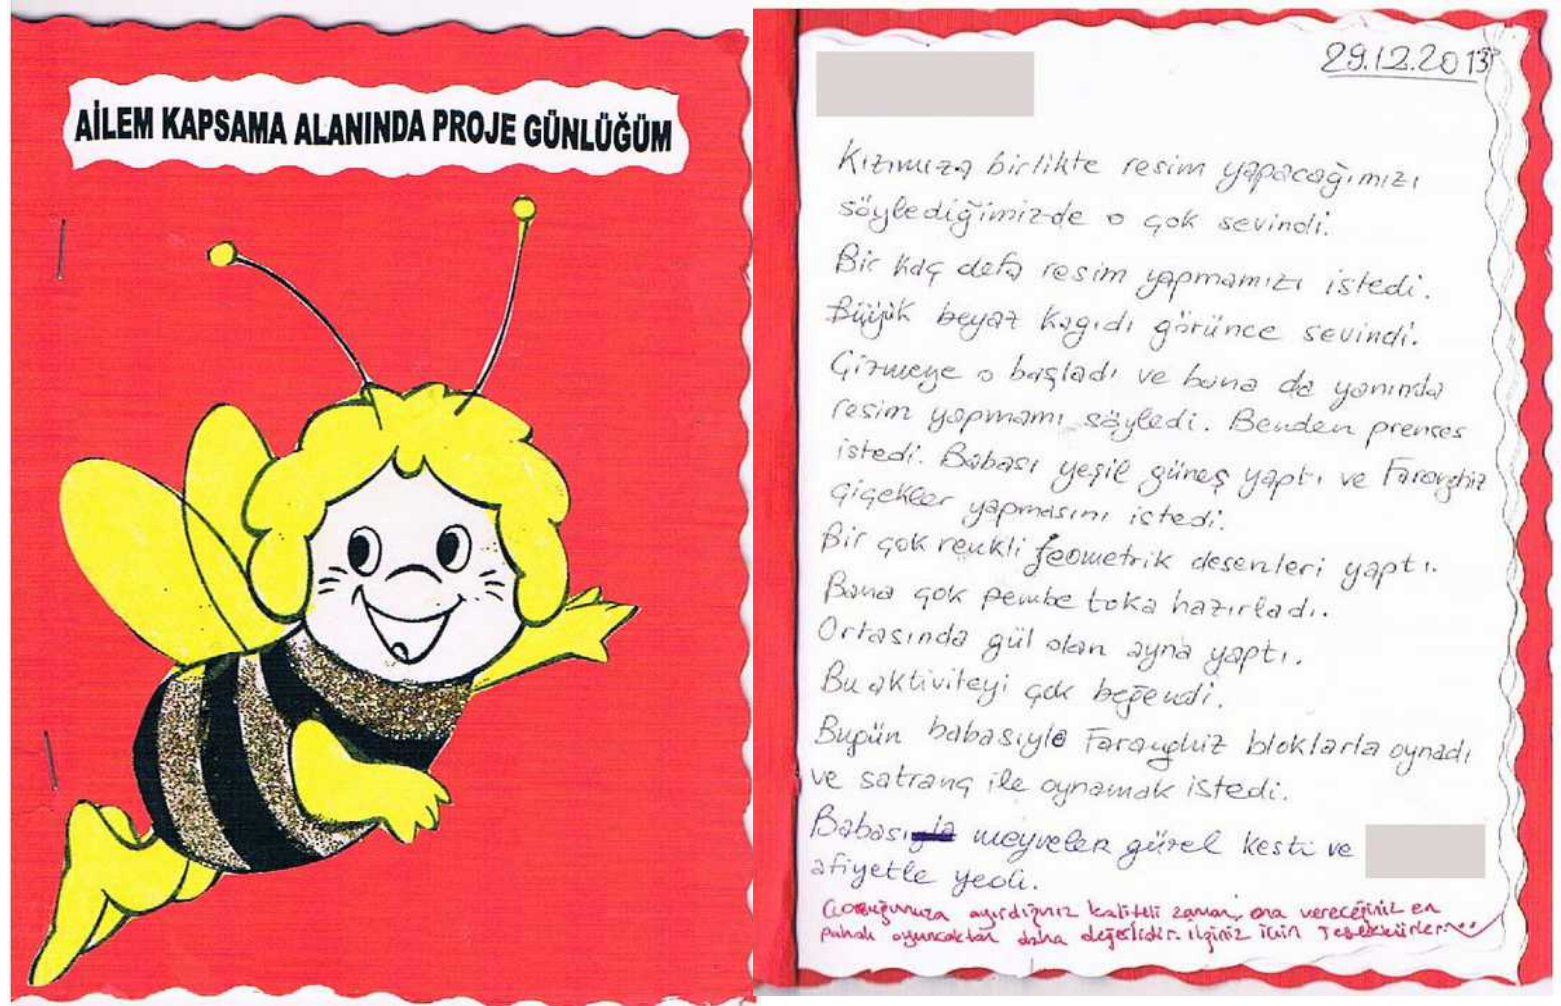 AİLEM KAPSAMA ALANINDA PROJE GÜNLÜĞÜM
29.12.2013
Kızımıza birlikte resim yapacağımızı
söylediğimizde o çok sevindi.
Bir kaç defa resim yapmamızı istedi.
Büyük beyaz kagıdı görünce sevindi.
Çizmeye o başladı ve bana da yanında
resim yapmamı söyledi. Benden prenses
istedi. Babası yeşil güneş yaptı ve Faroughiz
çiçekler yapmasını istedi.
Bir çok renkli geometrik desenleri yaptı.
Bana çok pembe toka hazırladı.
Ortasında gül olan ayna yaptı.
Bu aktiviteyi çok beğendi.
Bugün babasıyla Faroughiz bloklarla oynadı
ve satranç ile oynamak istedi.
Babası meyveler güzel kesti ve
afiyetle yedi.
Çocuğunuza ayırdığınız kaliteli zaman, ona vereceğiniz en
pahalı oyuncaktan daha değerlidir. ilginiz için Teşekkürler